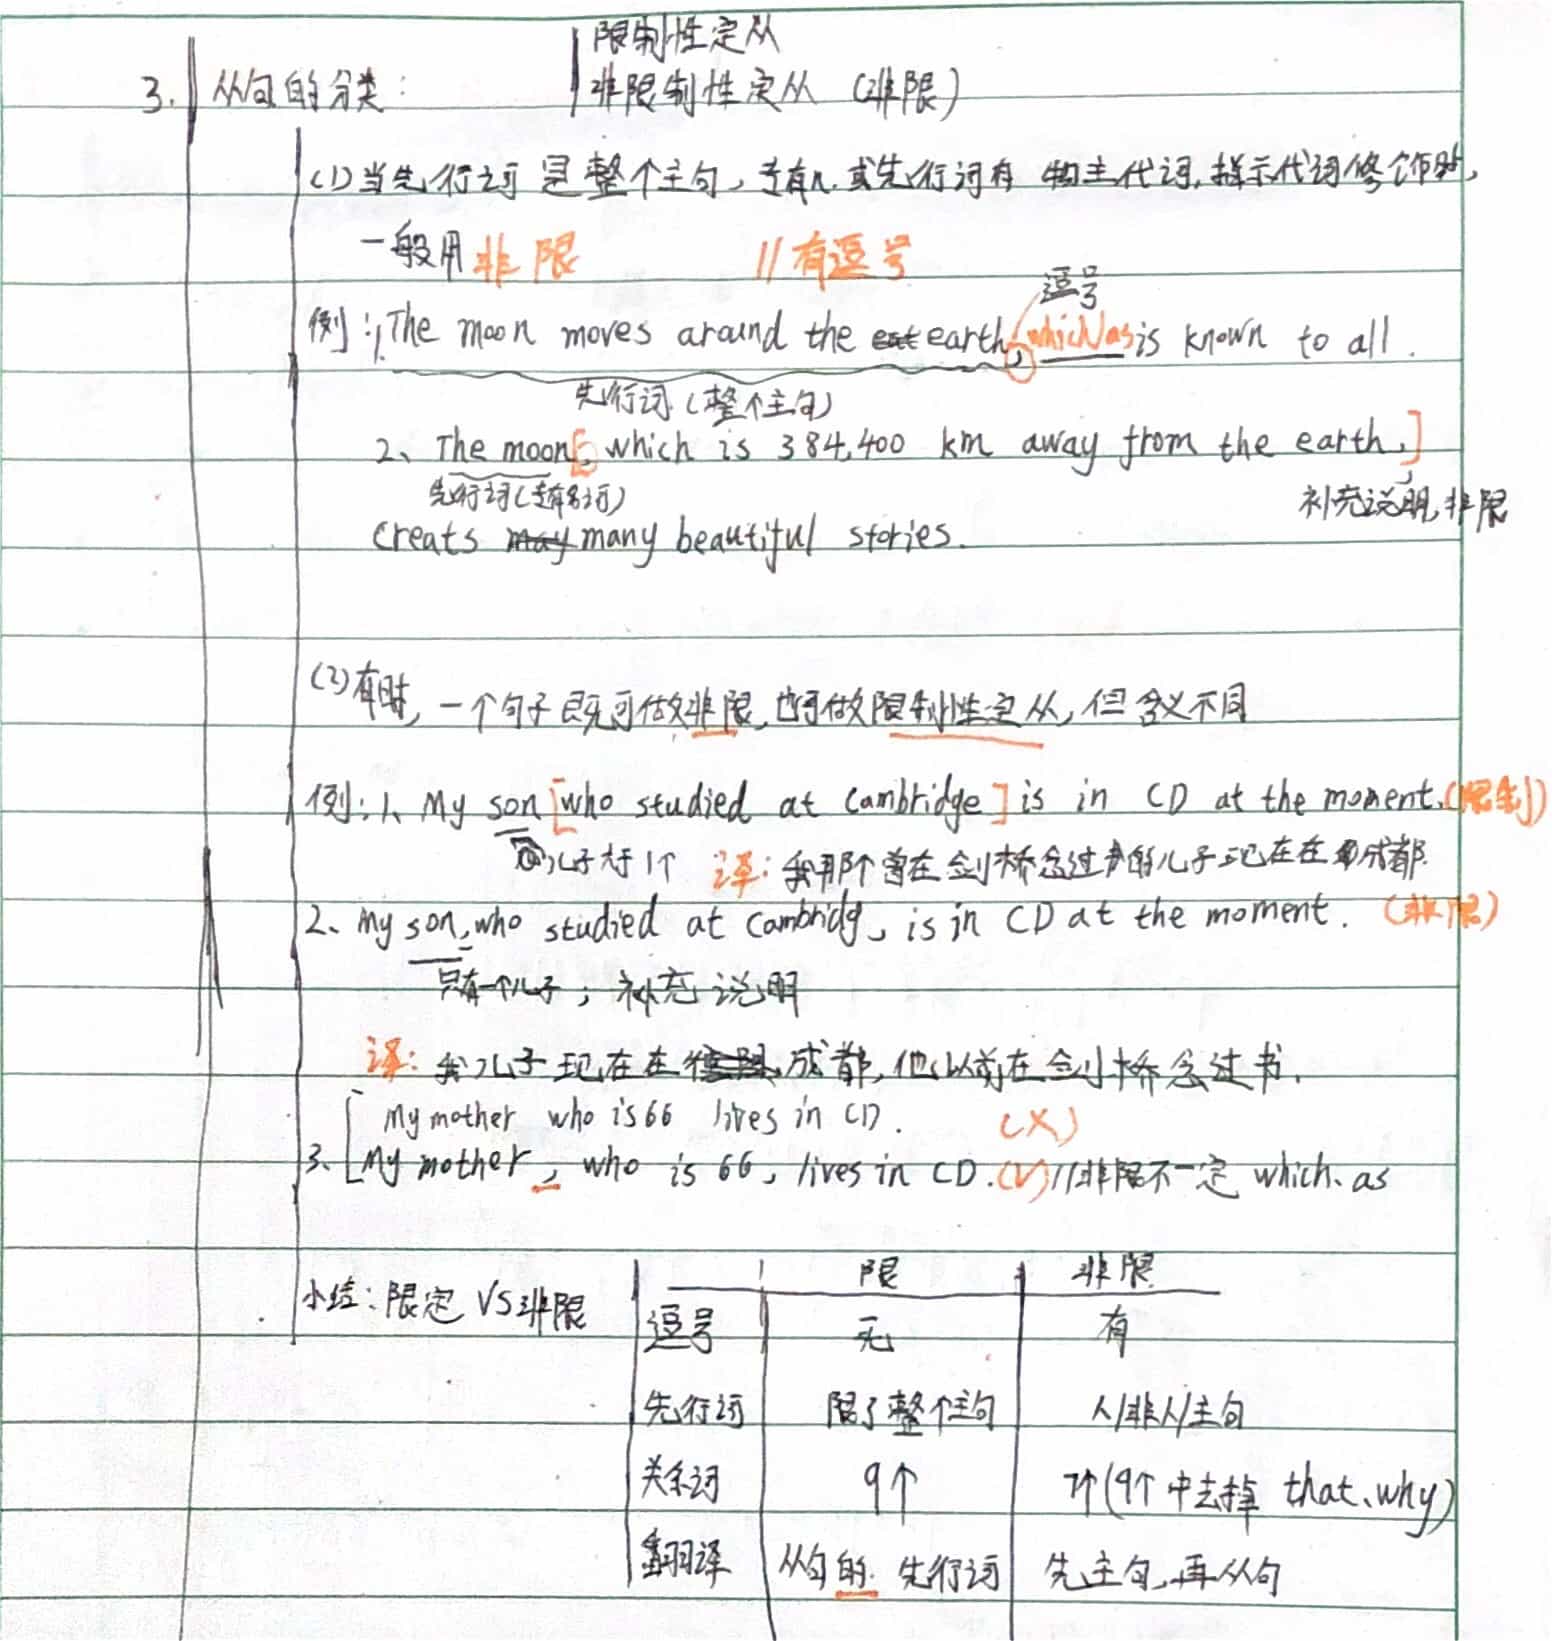 限制性定从
3. 从句的分类: 非限制性定从 (非限)
(1)当先行词是整个主句, 专有n. 或先行词有物主代词, 指示代词修饰时,
一般用非限 // 有逗号
逗号
例: 1, The moon moves around the eat earth, which/as is known to all.
先行词 (整个主句)
2、The moon[, which is 384,400 km away from the earth,]
先行词(专有名词) 补充说明, 非限
creats may many beautiful stories.
(2)有时, 一个句子既可做非限, 也可做限制性定从, 但含义不同
例: 1、My son [who studied at Cambridge] is in CD at the moment. (限制)
儿子大于1个 译: 我那个曾在剑桥念过书的儿子现在在成都
2、My son, who studied at Cambridg, is in CD at the moment. (非限)
只有一个儿子; 补充说明
译: 我儿子现在在成都, 他以前在剑桥念过书.
My mother who is 66 lives in CD. (×)
3、My mother, who is 66, lives in CD. (√) // 非限不一定 which、as
限 非限
小结: 限定 VS 非限 逗号 无 有
先行词 限了整个主句 人/非人/主句
关系词 9个 7个(9个中去掉 that、why)
翻译 从句的 先行词 先主句, 再从句